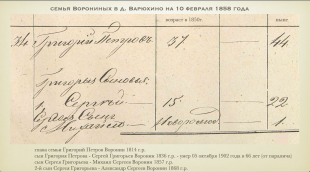 семья Ворониных в д. Варюхино на 10 февраля 1858 года
возраст в 1850г. ныне.
34 Григорий Петровъ 37 44
Григорья Сыновья:
1. Сергей 15 22
Сынъ
новорожд. 1
глава семьи Григорий Петров Воронин 1814 г.р.
сын Григория Петрова - Сергей Григорьев Воронин 1836 г.р. - умер 10 октября 1902 года в 66 лет (от паралича)
сын Сергея Григорьева - Михаил Сергеев Воронин 1857 г.р.
2-й сын Сергея Григорьева - Александр Сергеев Воронин 1860 г.р.